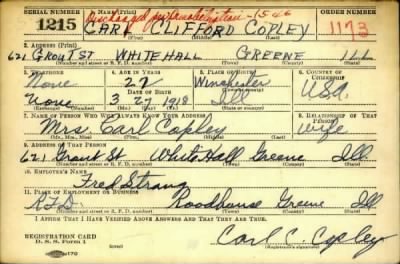 SERIAL NUMBER
1215
Discharged
CARL CLIFFORD COPLEY
(First) (Middle) (Last)
ORDER NUMBER
1173
2. ADDRESS (Print)
621 GROUT ST WHITE HALL GREENE ILL
(Number and street or R. F. D. number) (Town) (County) (State)
3. TELEPHONE
None
None
4. AGE IN YEARS
27
DATE OF BIRTH
3 27 1918
(Mo.) (Day) (Yr.)
5. PLACE OF BIRTH
Winchester
(Town or county)
Ill
(State or country)
6. COUNTRY OF CITIZENSHIP
USA
7. NAME OF PERSON WHO WILL ALWAYS KNOW YOUR ADDRESS
Mrs. Carl Copley
(Mr., Mrs., Miss) (First) (Middle) (Last)
8. RELATIONSHIP OF THAT PERSON
Wife
9. ADDRESS OF THAT PERSON
621 Grant St White Hall Greene Ill.
(Number and street or R. F. D. number) (Town) (County) (State)
10. EMPLOYER'S NAME
Fred Strang
11. PLACE OF EMPLOYMENT OR BUSINESS
RFD. Roodhouse Greene Ill
(Number and street or R. F. D. number) (Town) (County) (State)
I AFFIRM THAT I HAVE VERIFIED ABOVE ANSWERS AND THAT THEY ARE TRUE.
REGISTRATION CARD
D. S. S. Form 1
Carl C. Copley
(Registrant's signature)